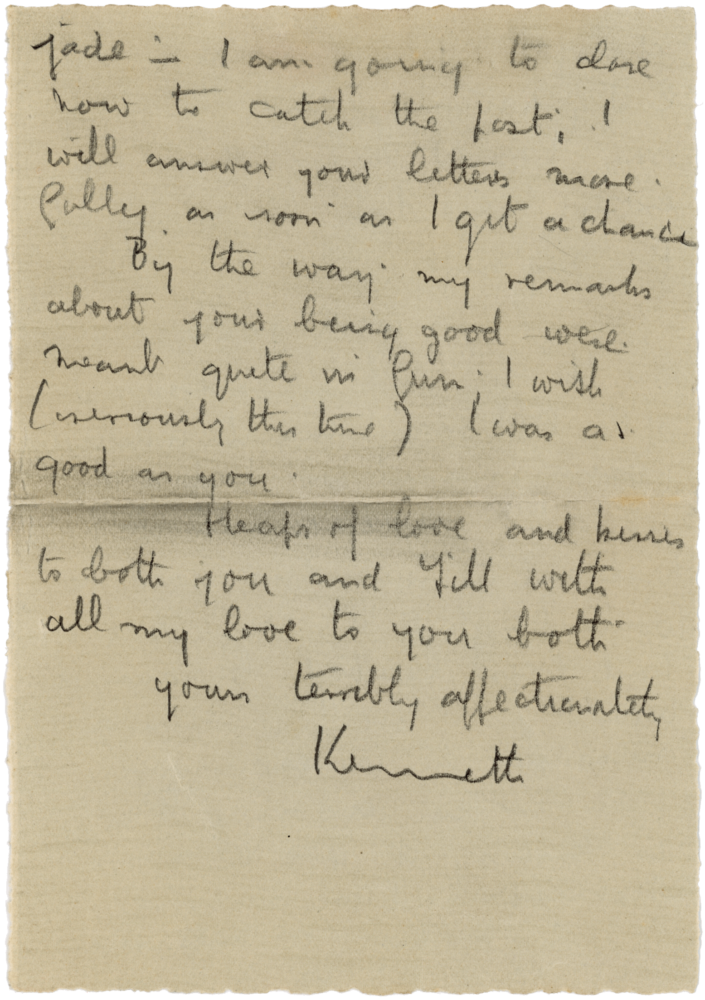 jade :- I am going to close
now to catch the post; I
will answer your letters more
fully as soon as I get a chance
By the way my remarks
about your being good were
meant quite in fun; I wish
(seriously this time) I was as
good as you.
Heaps of love and kisses
to both you and Jill with
all my love to you both
yours terribly affectionately
Kenneth